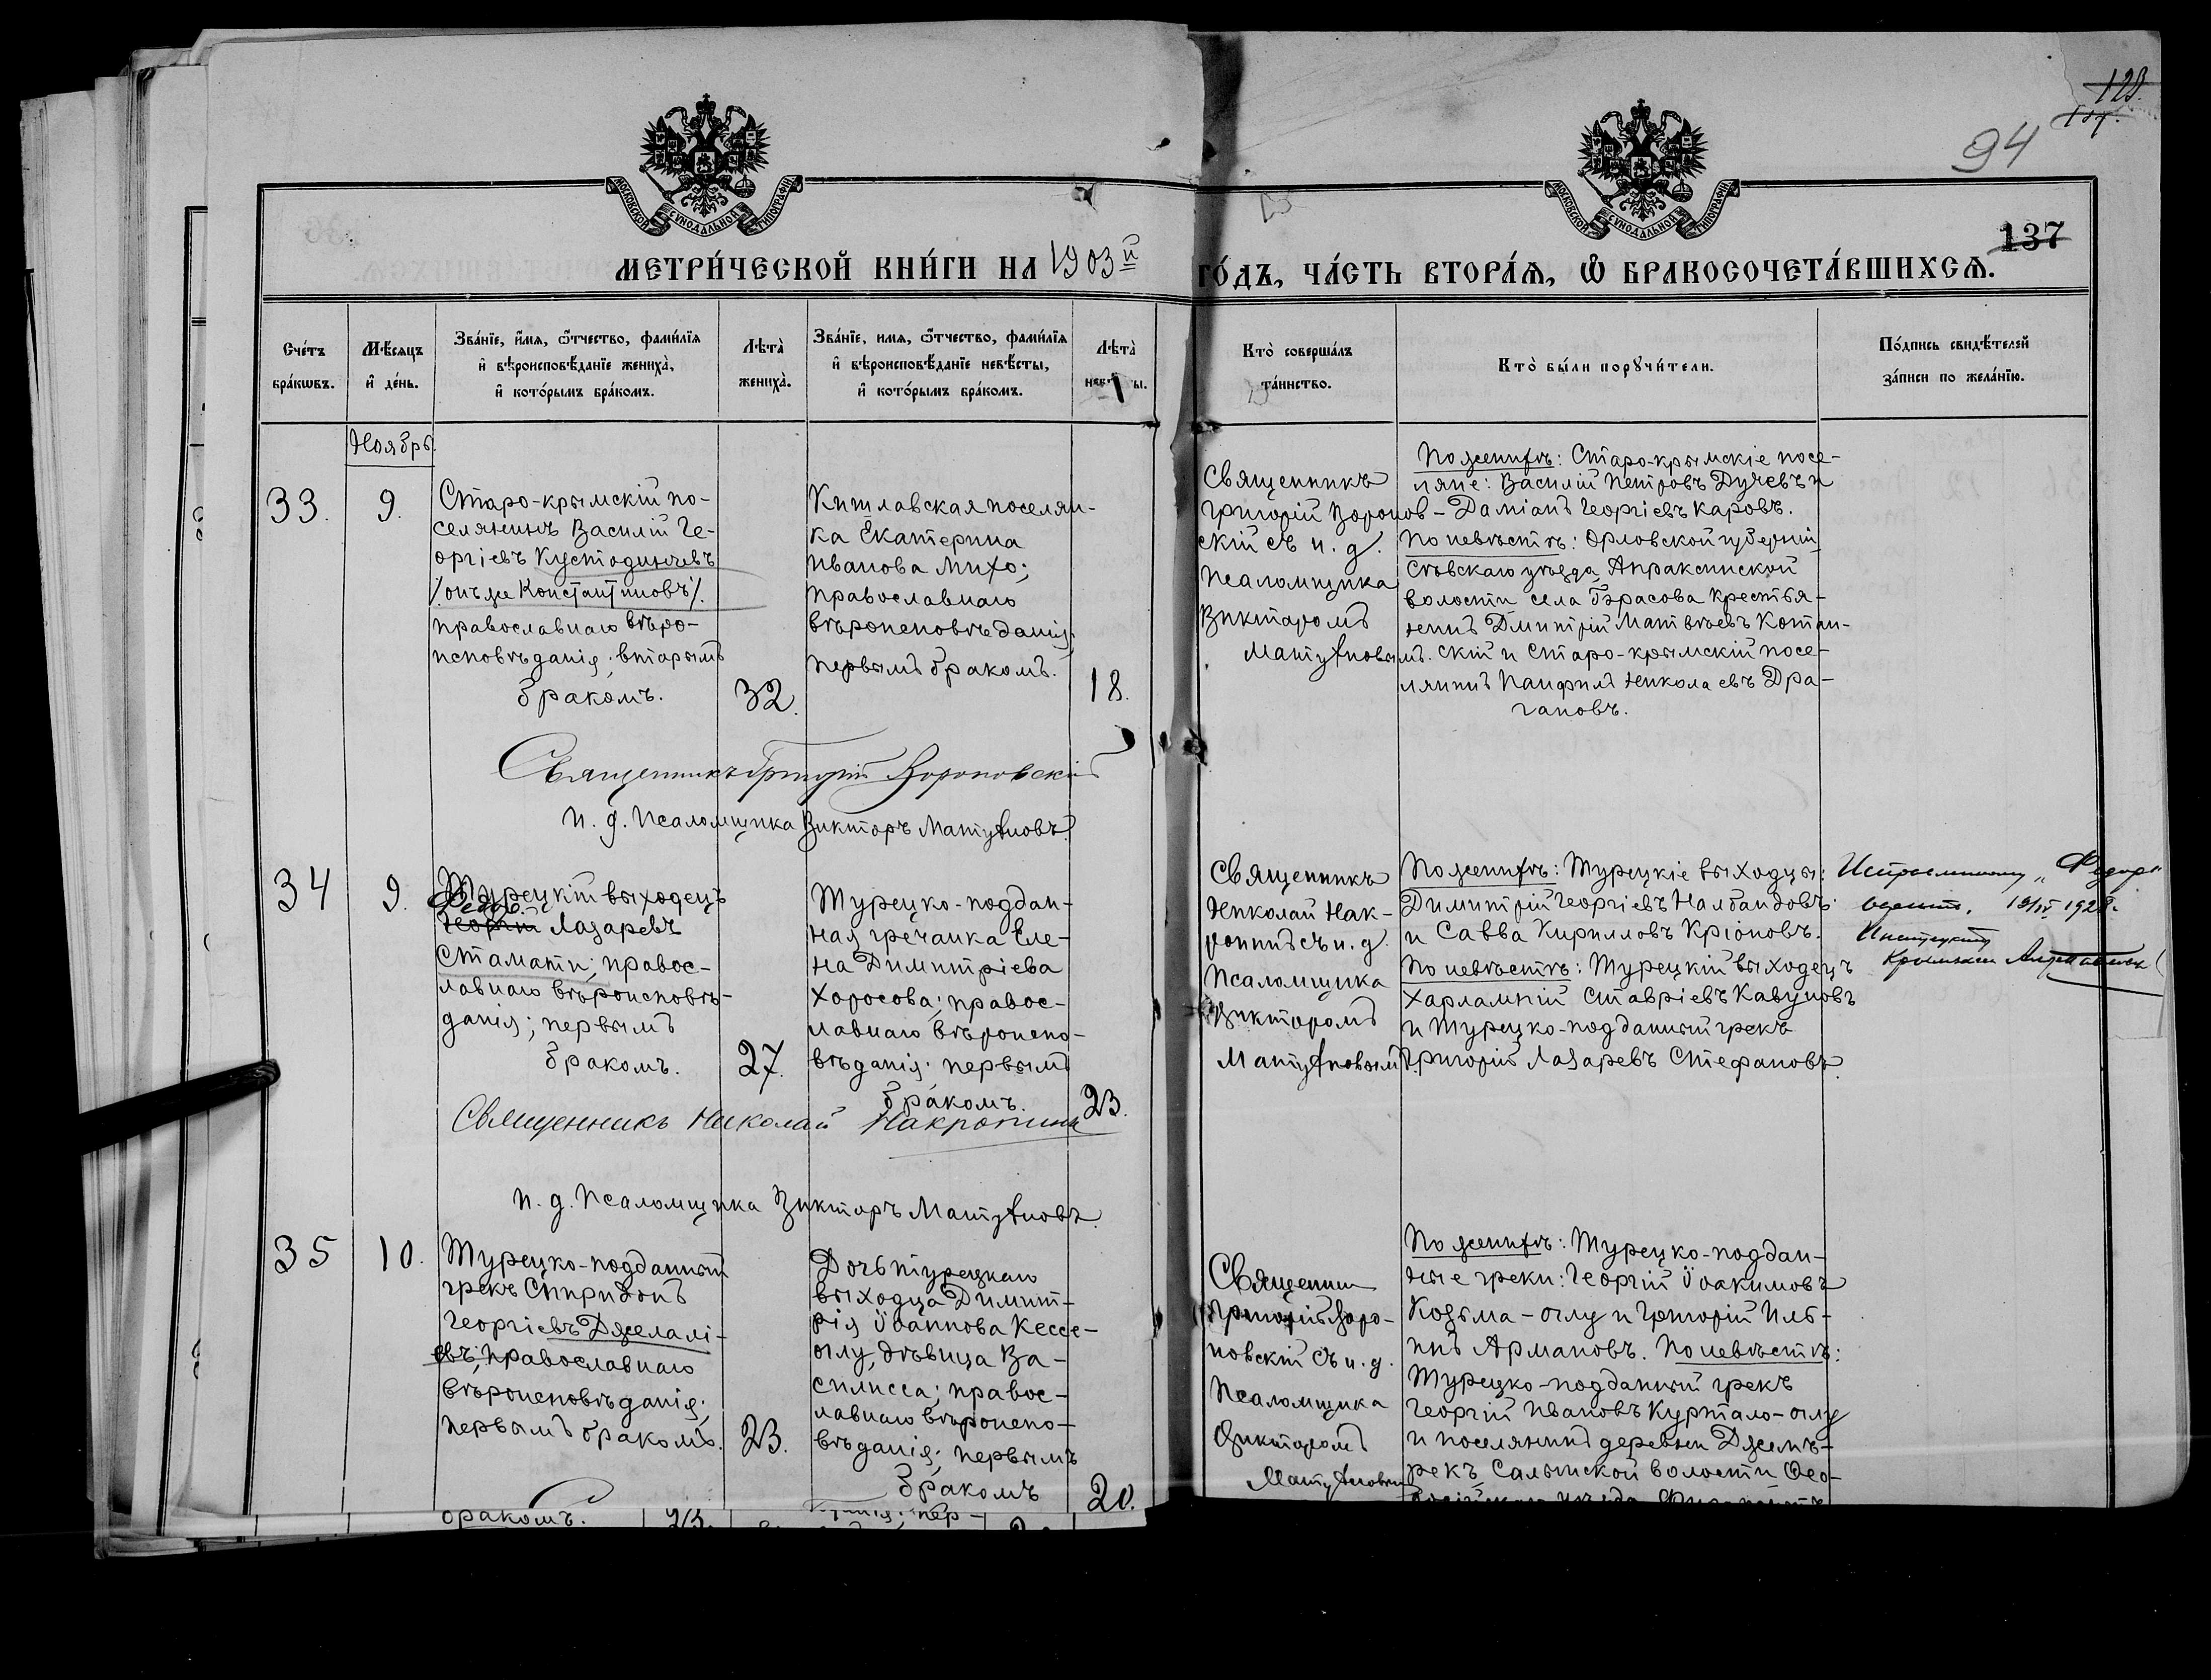 123.
94
137
МОСКОВСКОЙ СѴНОДАЛЬНОЙ ТИПОГРАФІИ
МОСКОВСКОЙ СѴНОДАЛЬНОЙ ТИПОГРАФІИ
МЕТРИ́ЧЕСКОЙ КНИ́ГИ НА 1903й
ГО́ДЪ, ЧА́СТЬ ВТОРА́Ѧ, Ѽ БРАКОСОЧЕТА́ВШИХСѦ.
Сче́тъ
бра́кѡвъ.
Мѣ́сѧцъ
и҆ де́нь.
Зва́нїе, и҆́мѧ, ѻ҆́тчество, фами́лїѧ
и҆ вѣроисповѣ́данїе жениха̀,
и҆ кото́рымъ бра́комъ.
Лѣта̀
жениха̀.
Зва́нїе, имѧ, ѻ҆́тчество, фами́лїѧ
и҆ вѣроисповѣ́данїе невѣ́сты,
и҆ кото́рымъ бра́комъ.
Лѣта̀
Кто̀ соверша́лъ
та́инство.
Кто̀ бы́ли порꙋчи́тели.
По́дпись свидѣ́телей
за́писи по жела́нїю.
Ноябрь.
33.
9.
Старо-крымскій по-
селянинъ Василій Ге-
оргіевъ Кустодинчевъ
/онъ же Константиновъ/.
православнаго вѣро-
исповѣданія; вторымъ
бракомъ.
32.
Кишлавская поселян-
ка Екатерина
Иванова Михо;
православнаго
вѣроисповѣданія;
первымъ бракомъ.
18.
Священникъ
Григорій Воронов-
скій съ и. д.
Псаломщика
Викторомъ
Матушновымъ.
По женихѣ: Старо-крымскіе посе-
ляне: Василій Петровъ Дучевъ и
Даміанъ Георгіевъ Каровъ.
По невѣстѣ: Орловской губерніи,
Сѣвскаго уѣзда, Апраксинской
волости села Тарасова крестья-
нинъ Дмитрій Матвѣевъ Котан-
скій и Старо-крымскій посе-
лянинъ Панфилъ Николаевъ Дра-
гановъ.
Священникъ Григорій Вороновскій
И. д. Псаломщика Викторъ Матушновъ
34
9.
Турецкій выходецъ
Федоръ
Георгій Лазаревъ
Стамати; правос-
лавнаго вѣроисповѣ-
данія; первымъ
бракомъ.
27.
Турецко-поддан-
ная гречанка Еле-
на Димитріева
Хоросова; правос-
лавнаго вѣроиспо-
вѣданія; первымъ
бракомъ.
23.
Священникъ
Николай Нак-
ропинъ съ и. д.
Псаломщика
Викторомъ
Матушновымъ.
По женихѣ: Турецкіе выходцы:
Димитрій Георгіевъ Налбандовъ
и Савва Кирилловъ Кріоновъ.
По невѣстѣ: Турецкій выходецъ
Харлампій Ставріевъ Кавуновъ
и Турецко-подданный грекъ
Григорій Лазаревъ Стефановъ.
"Федоръ"
1928.
Священникъ Николай Накропинъ
И. д. Псаломщика Викторъ Матушновъ.
35
10.
Турецко-подданный
грекъ Спиридонъ
Георгіевъ Джелалі-
евъ; православнаго
вѣроисповѣданія;
первымъ бракомъ.
23.
Дочь турецкаго
выходца Димит-
рія Іоаннова Кессе-
оглу, дѣвица Ва-
силисса; правос-
лавнаго вѣроиспо-
вѣданія; первымъ
бракомъ
20.
Священник
Григорій Воро-
новскій съ и. д.
Псаломщика
Викторомъ
Матушновым
По женихѣ: Турецко-поддан-
ные греки: Георгій Іоакимовъ
Козьма-оглу и Григорій Иль-
инъ Армановъ. По невѣстѣ:
Турецко-подданный грекъ
Георгій Ивановъ Куртало-оглу
и поселянинъ деревни Джемъ-
рекъ, Салынской волости Фео-
бракомъ.
23.